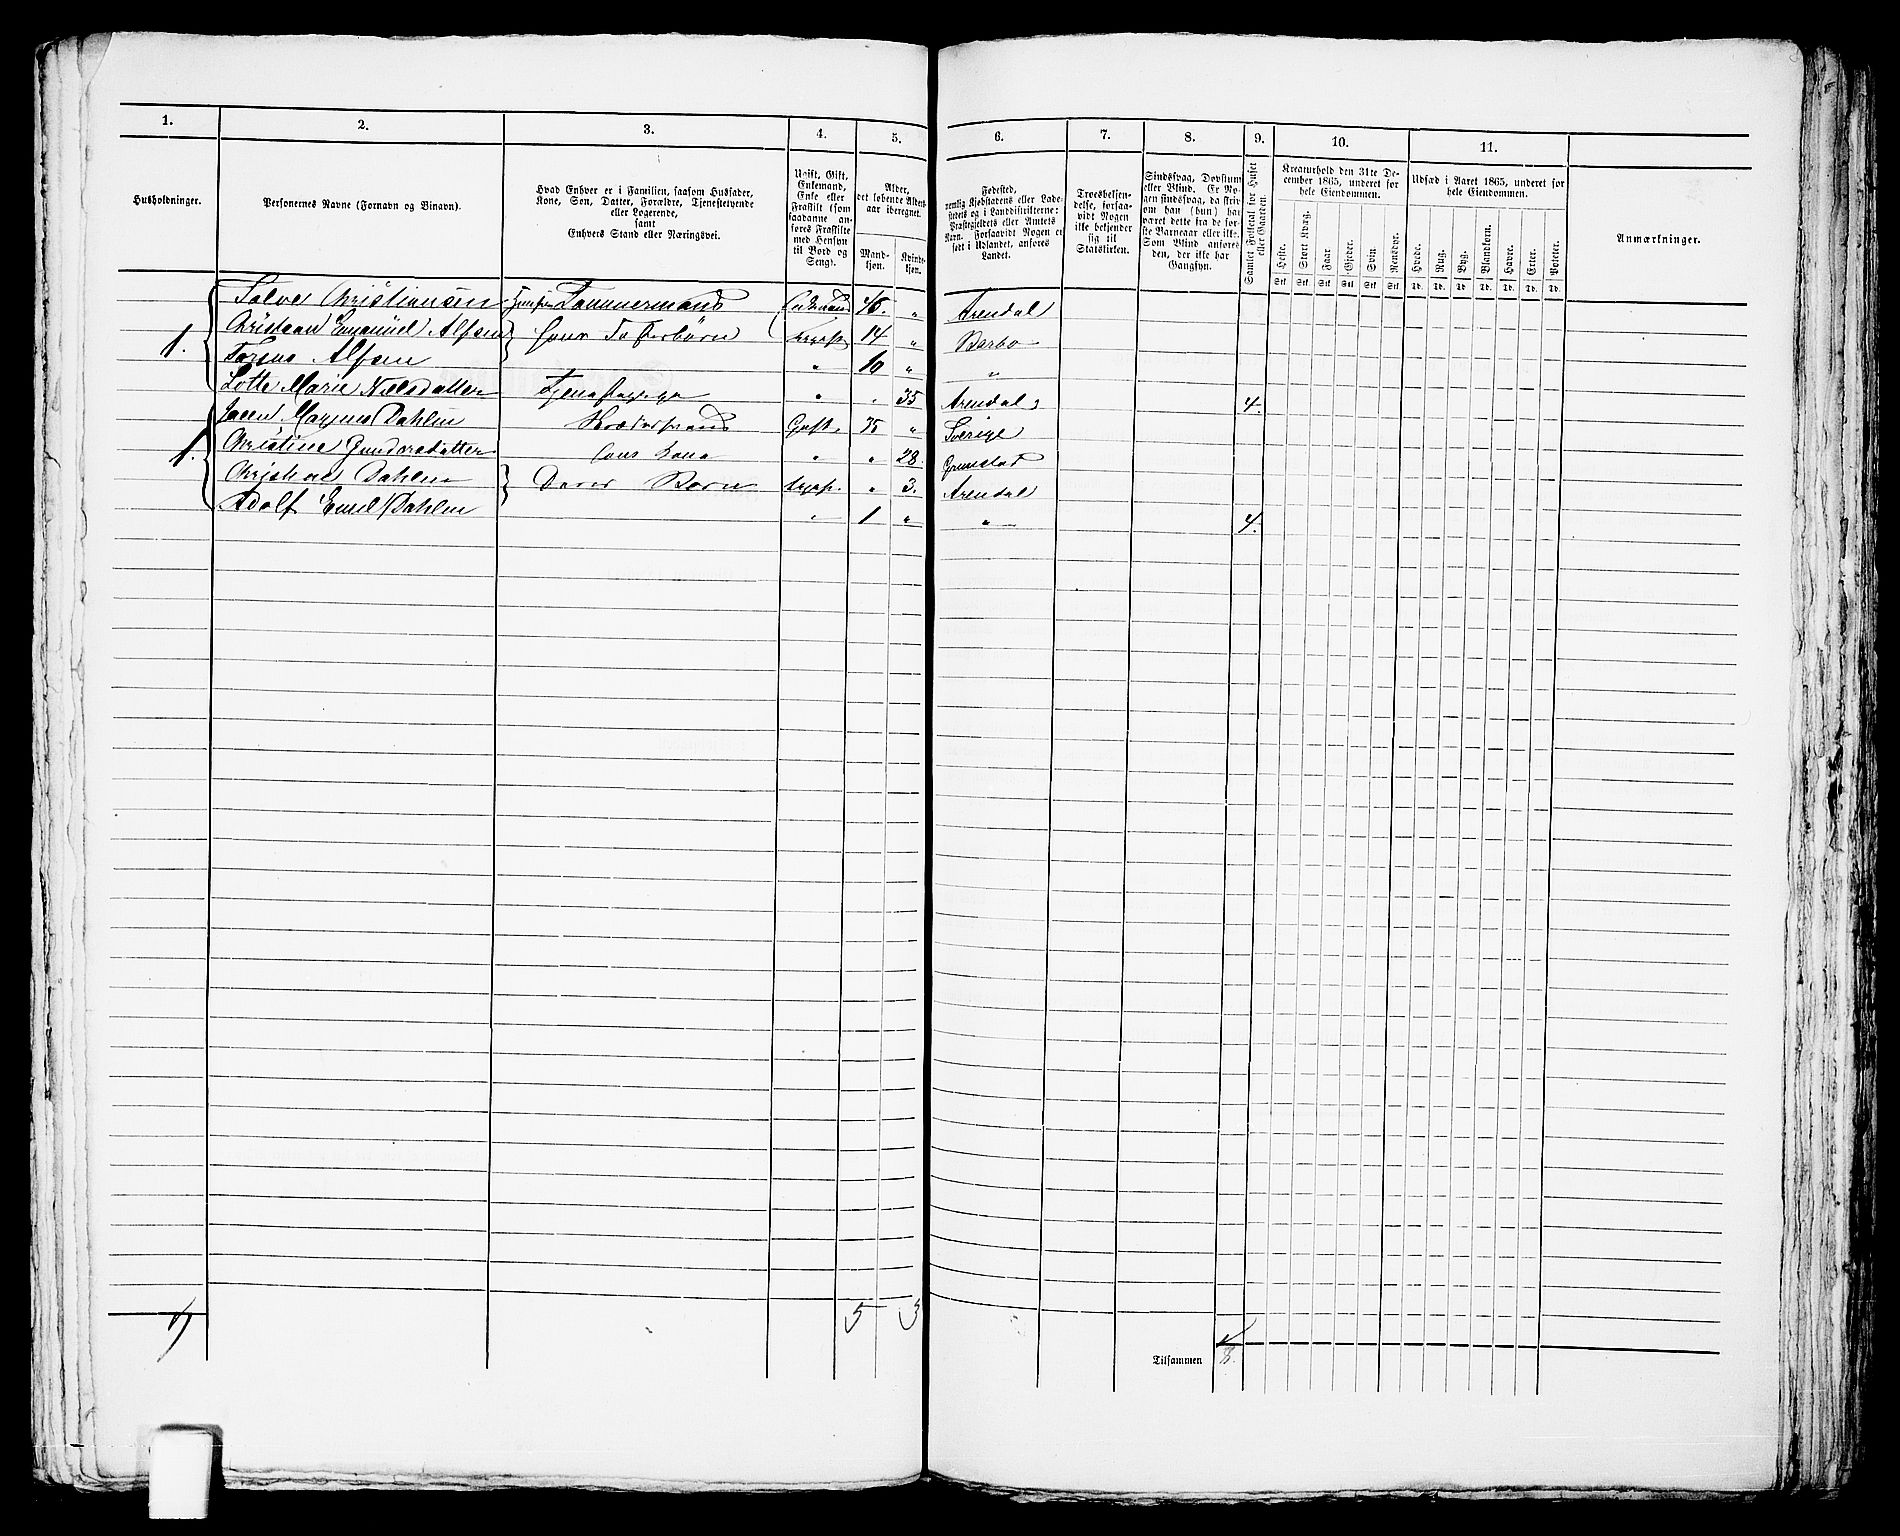 1. 2. 3. 4. 5. 6. 7. 8. 9. 10. 11.
Husholdninger.
Personernes Navne (Fornavn og Binavn).
Hvad Enhver er i Familien, saasom Husfader,
Kone, Søn, Datter, Forældre, Tjenestetyende
eller Logerende,
samt
Enhvers Stand eller Næringsvei.
Ugift, Gift,
Enkemand,
Enke eller
Fraskilt (som
saadanne an-
føres Fraskilte
med Hensyn
til Bord og
Seng).
Alder,
det løbende Alders-
aar iberegnet.
Mand-
kjøn.
Kvinde-
kjøn.
Fødested,
nemlig Kjøbstadens eller Lade-
stedets og i Landdistrikterne:
Præstegjeldets eller Amtets
Navn. Forsaavidt Nogen er
født i Udlandet, anføres
Landet.
Troesbekjen-
delse, forsaa-
vidt Nogen
ikke bekjender
sig til
Statskirken.
Sindssvag, Døvstum
eller Blind. Er No-
gen sindssvag, da skriv
om han (hun) har
været dette fra de før-
ste Barneaar eller ikke.
Som Blind anføres
den, der ikke har
Gangsyn.
Samlet Folketal for Huset
eller Gaarden.
Kreaturhold den 31te De-
cember 1865, underet for
hele Eiendommen.
Heste.
Stort Kvæg.
Faar.
Gjeder.
Svin.
Rensdyr.
Stk. Stk. Stk. Stk. Stk. Stk.
Udsæd i Aaret 1865, underet for
hele Eiendommen.
Hvede.
Rug.
Byg.
Blandkorn.
Havre.
Erter.
Poteter.
Td. Td. Td. Td. Td. Td. Td.
Anmærkninger.
Salve Christiansen Tømmermand Enkemand 46. " Arendal
Christian Emanuel Alfsen hans Fosterbørn Ugift 14 " Barbo
1. Alfsen " 10 " "
Lotte Marie Nielsdatter Tjenestepige " " 35 Arendal 4.
Magnus Dahlin Gift 35 " Sverige
1. Christine Gundersdatter hans Kone " " 28. Grimstad
Dahlin Deres Børn Ugift. " 3. Arendal
Adolf Emil Dahlin " 1 " " 4.
5 3
Tilsammen 8.